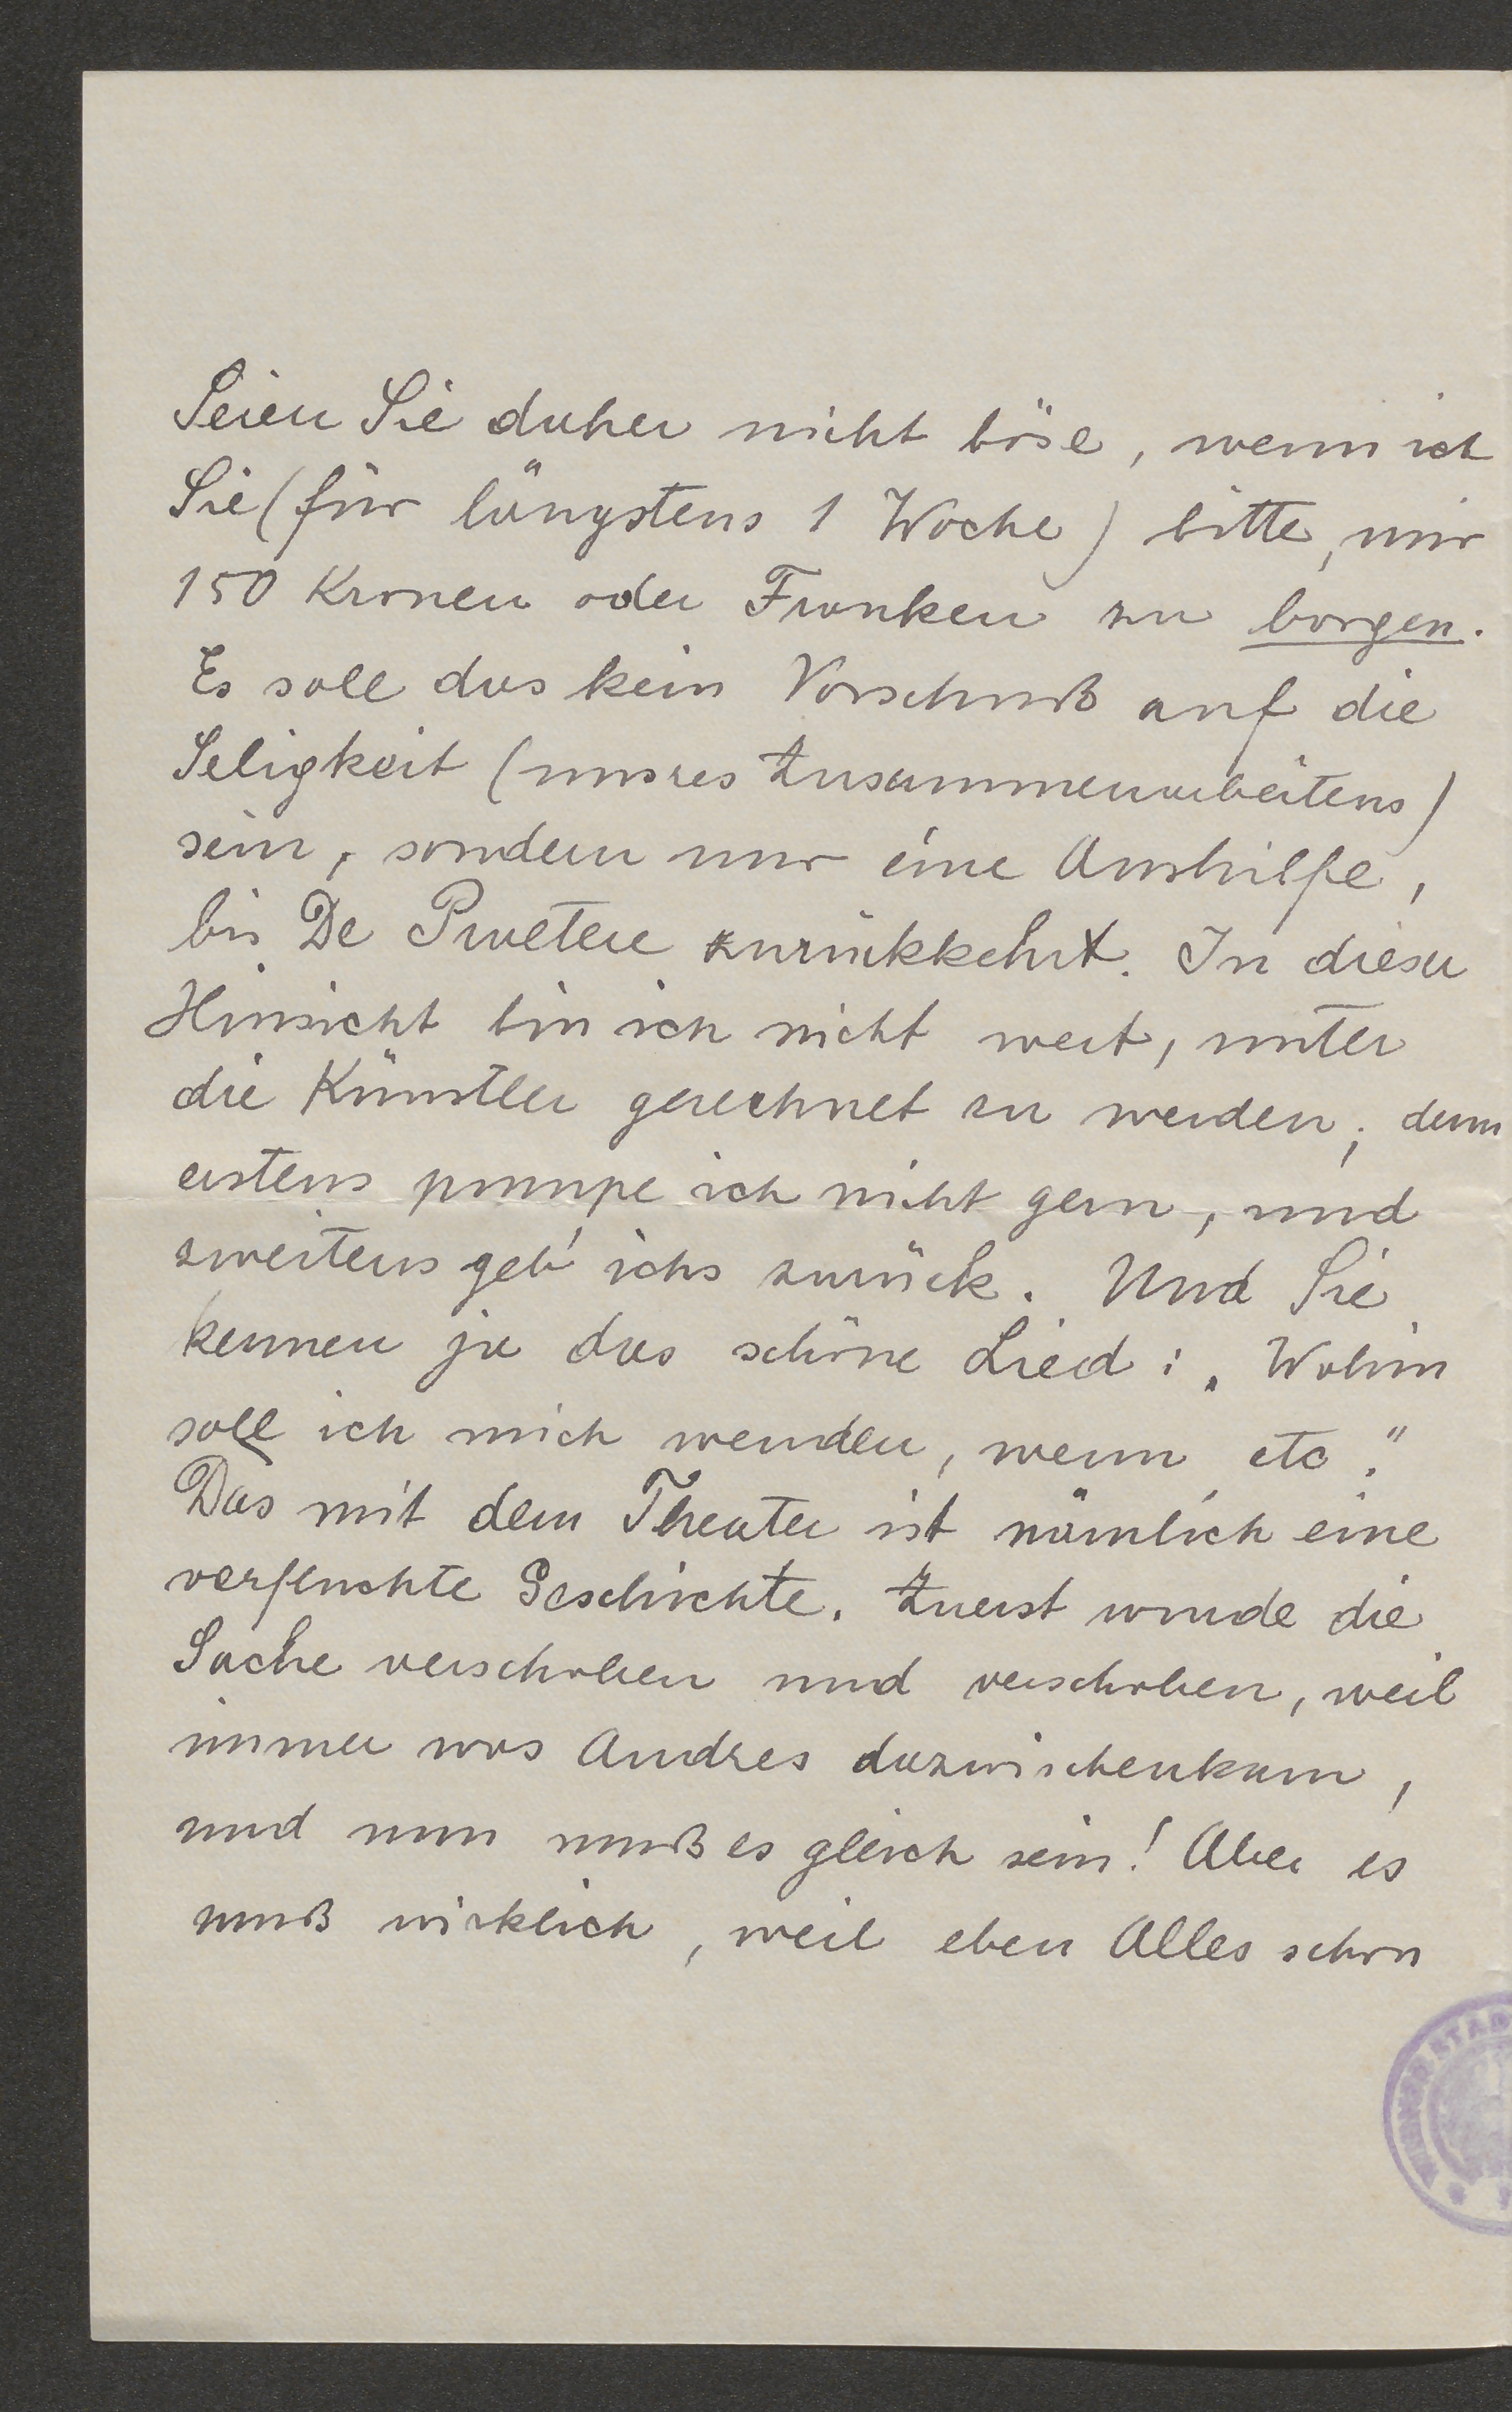 Seien Sie daher nicht böse, wenn ich
Sie (für längstens 1 Woche) bitte, mir
150 Kronen oder Franken zu borgen.
Es soll das kein Vorschuß auf die
Seligkeit (unsres Zusammenarbeitens)
sein, sondern nur eine Aushilfe,
bis De Praetere zurückkehrt. In dieser
Hinsicht bin ich nicht wert, unter
die Künstler gerechnet zu werden; denn
erstens pumpe ich nicht gern, und
zweitens geb' ichs zurück. Und Sie
kennen ja das schöne Lied: „Wohin
soll ich mich wenden, wenn etc."
Das mit dem Theater ist nämlich eine
verfluchte Geschichte. Zuerst wurde die
Sache verschoben und verschoben, weil
immer was Andres dazwischenkam,
und nun muß es gleich sein! Aber es
muß wirklich, weil eben Alles schon